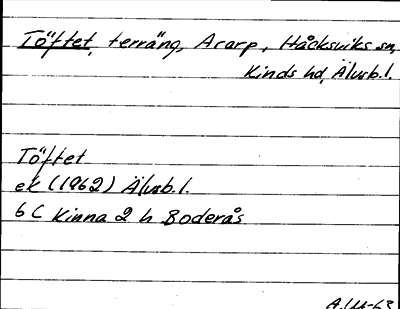 Töftet, terräng, Acarp, Håcksviks sn,
Kinds hd, Älvsb.l.
Töftet
ek (1962) Älvsb.l.
6 C Kinna 2 h Boderås